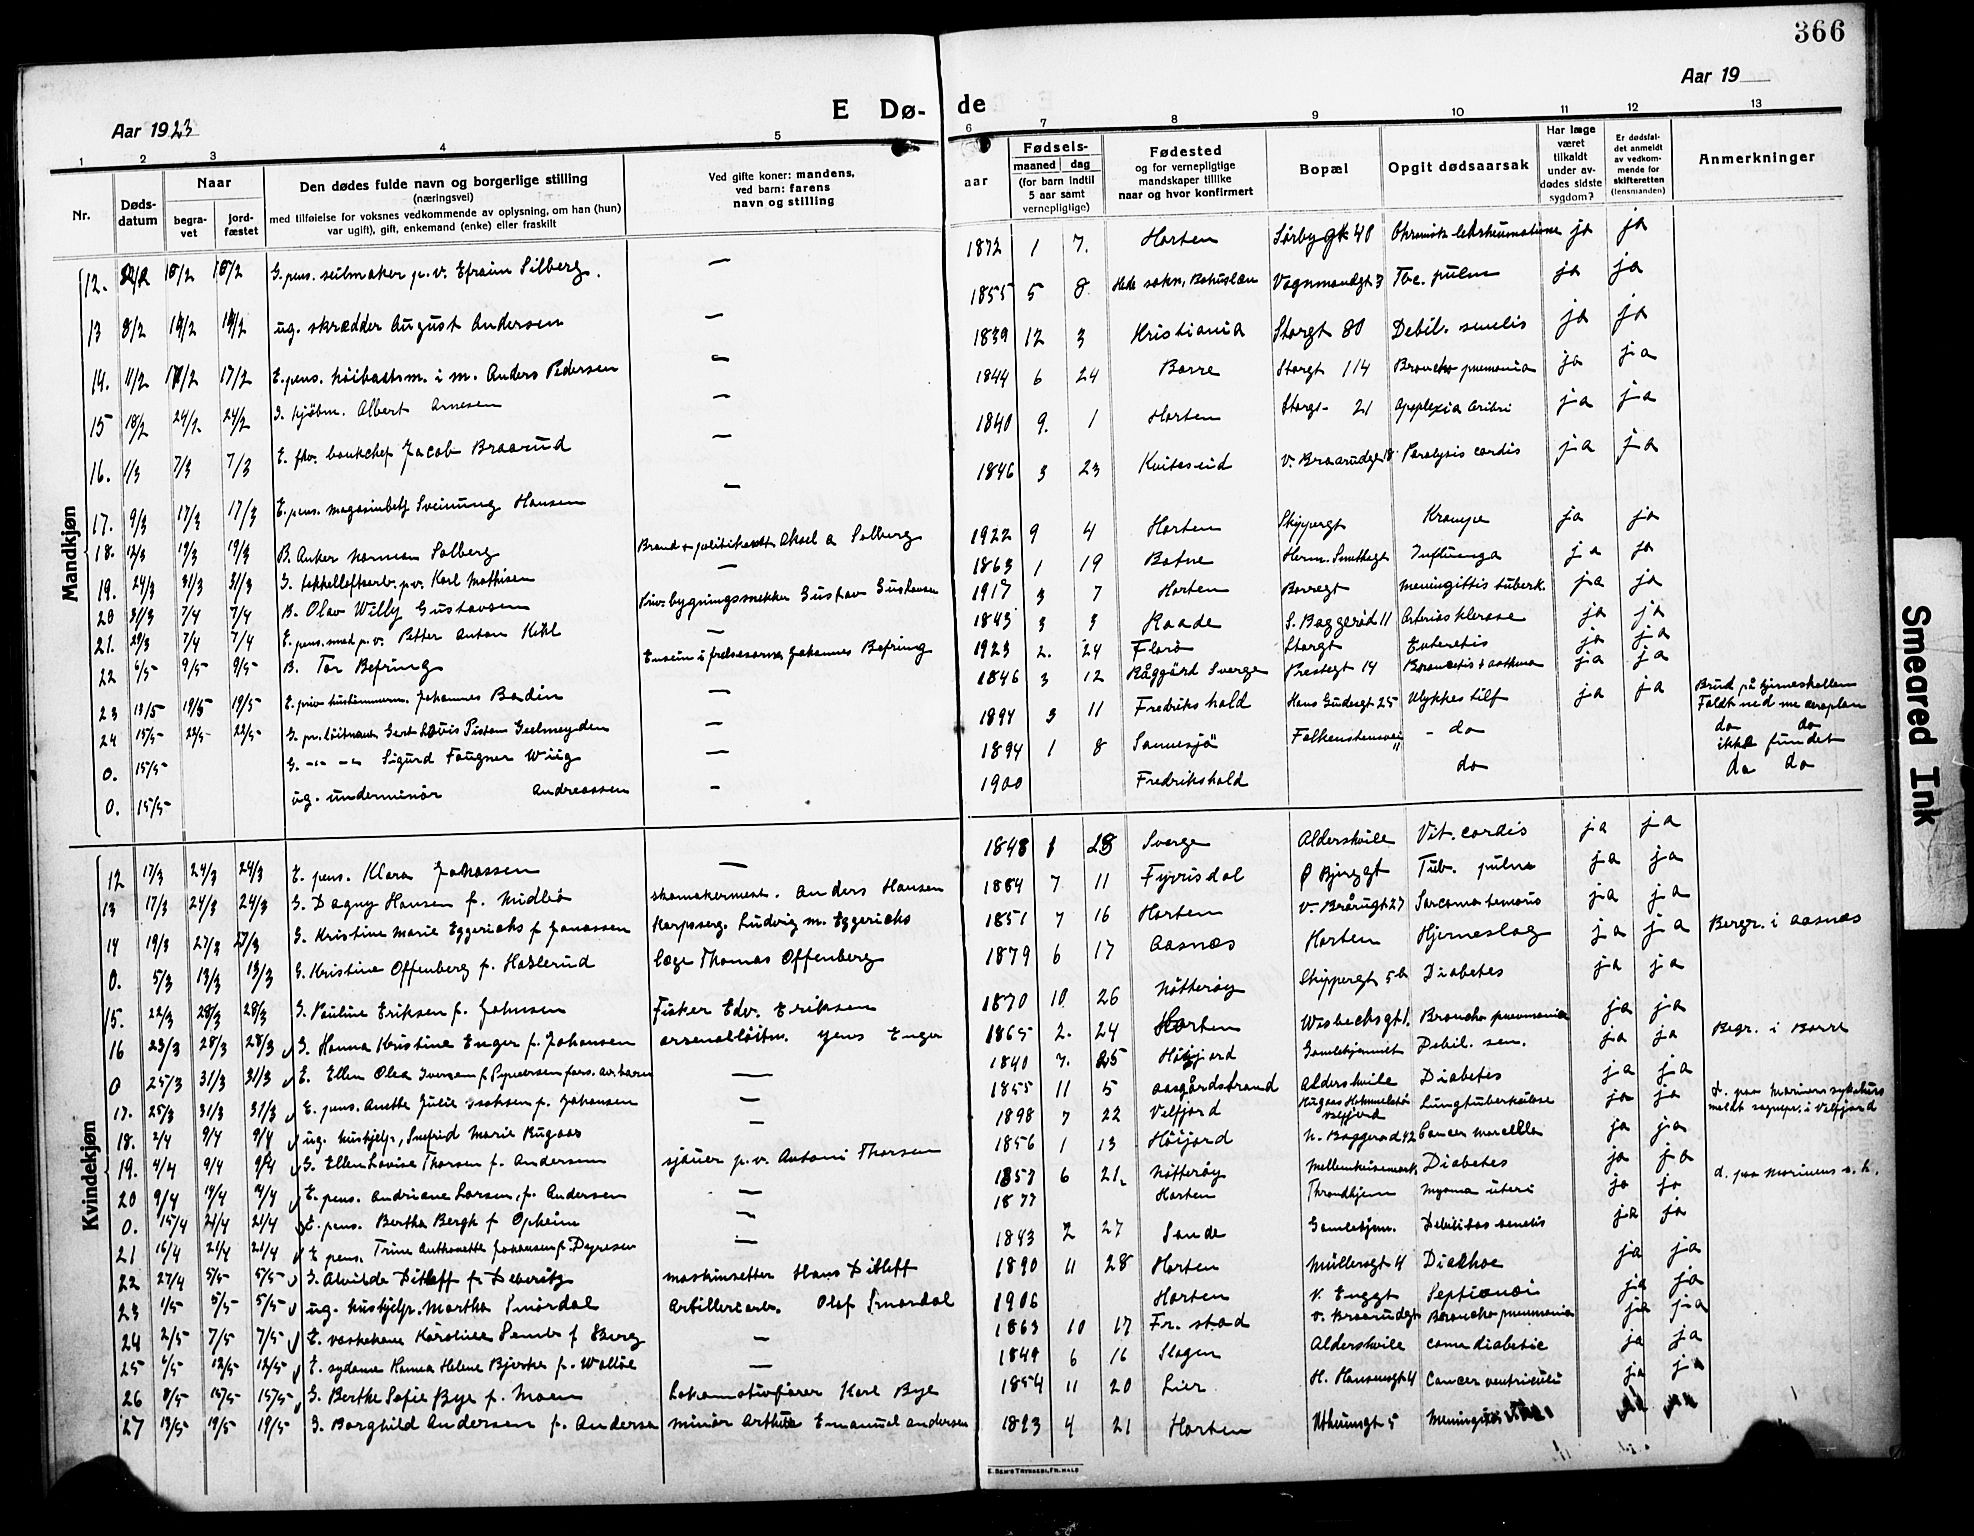 366
Aar 1923
E Dø- de
Aar 19
1 2 3 4 5 6 7 8 9 10 11 12 13
Nr.
Dødsdatum
Naar
begravet
jordfæstet
Den dødes fulde navn og borgerlige stilling
(næringsvei)
med tilføielse for voksnes vedkommende av oplysning, om han (hun)
var ugift), gift, enkemand (enke) eller fraskilt
Ved gifte koner: mandens,
ved barn: farens
navn og stilling
Fødsels-
aar
maaned dag
(for barn indtil
5 aar samt
vernepligtige)
Fødested
og for vernepligtige
mandskaper tillike
naar og hvor konfirmert
Bopæl
Opgit dødsaarsak
Har læge
været
tilkaldt
under av-
dødes sidste
sygdom?
Er dødsfal-
det anmeldt
av vedkom-
mende for
skifteretten
(lensmanden)
Anmerkninger
Mandkjøn
12. 10/2 10/2 G. pens. seilmaker p.v. Efraim Silberg. — 1872 1 7. Horten Sørbygt 40 ja ja
13 8/2 14/2 14/2 ug. skrædder August Andersen — 1855 5 8 Hede sokn, Bohuslæn Vognmandgt 3 Tbc. pulm ja ja
14. 11/2 17/2 17/2 E. pens. høibaatsm. i m. Anders Pedersen — 1839 12 3 Kristiania Storgt 80 Debil. senilis ja ja
15 18/2 24/2 24/2 G. kjøbm. Albert Arnesen — 1844 6 24 Borre Storgt 114 Broncho pnemonia ja ja
16. 1/3 7/3 7/3 E. fhv. bankchef Jacob Braarud — 1840 9. 1 Horten Storgt 21 Apoplexia ceribri ja ja
17. 9/3 17/3 17/3 E. pens. magasinbetj Sveinung Hansen — 1846 3 23 Kviteseid V. Braarudgt 18 Paralysis cordis ja ja
18. 12/3 19/3 19/3 B. Anker Norman Solberg Brand & politikonst. Aksel A Solberg 1922 9 4 Horten Skippergt Krampe ja ja
19. 24/3 31/3 31/3 G. takkelloftsarb. p.v. Karl Mathisen — 1863 1 19 Botne Herm. Smithsgt Influenza ja ja
20 31/3 7/4 7/4 B. Olav Willy Gustavsen Priv. bygningssnekker Gustav Gustavsen 1917 3 7 Horten Borregt Meningittis tuberk. ja ja
21. 29/3 7/4 7/4 E. pens. smed p.v. Petter Anton Kihl — 1843 3 3 Raade S. Baggerød 11 Arteriosklerose ja ja
22 6/5 9/5 9/5 B. Tor Befring Ensein i frelsesarmé Johannes Befring 1923 2. 24 Florø Storgt Enteretis ja ja
23 13/5 19/5 19/5 E. priv hustømmerm. Johannes Bodin — 1846 3 12 Råggärd Sverge Prestegt 14 Broncetis & asthma ja ja
24 15/5 22/5 22/5 G. pr. løitnant Gert Lovis Piston Geelmeyden — 1894 3 11 Fredrikshald Hans Gudesgt 25 Ulykkestilf ja ja Brud på hjerneskallen Faldt ned me aeroplan
0. 15/5 G. -"- -"- Sigurd Fougner Wiig — 1894 1 8 Sannesjö Falkenstensvei 11 - do do do ikke fundet
0. 15/5 ug. underminør Andreassen — 1900 Fredrikshald do do do
Kvindekjøn
12 17/3 24/3 24/3 E. pens. Klara Johassen — 1848 1 23 Sverge Aldershvile Vit. cordis ja ja
13 17/3 24/3 24/3 G. Dagny Hansen f. Midbø skomakermest. Anders Hansen 1884 7 11 Fyrrisdal Ø Bjergt Tub. pulm ja ja
14 19/3 27/3 27/3 G. Kristine Marie Eggerichs f Jonassen Korpsserg. Ludvig m. Eggerichs 1851 7 16 Horten V. Brårugt 27 ja ja
0. 5/3 13/3 13/3 G. Kristine Offenberg f. Haslerud læge Thomas Offenberg 1879 6 17 Aasnæs Horten Hjerneslag ja ja Begr. i Aasnæs
15. 22/3 28/3 28/3 G. Pauline Eriksen f. Johnsen Fisker Edv. Eriksen 1870 10. 26 Nøtterøy Skippergt 5b Diabetes ja ja
16 23/3 28/3 28/3 G. Hanna Kristine Enger f. Johansen arsenalløitn. Jens Enger 1865 2. 24 Horten Wisbechsgt 1. Broncho pneumonia ja ja
0 25/3 31/3 31/3 E. Ellen Olea Iversen — 1840 7. 25 Høijord Gamlehjemmet Debil. sen. ja ja Begr. i Borre
17. 25/3 31/3 31/3 E. pens. Anette Julie Isaksen f. Johansen — 1855 11 5 Aasgårdstrand Aldershvile Diabetes ja ja
18. 2/4 9/4 9/4 ug. hushjelp, Snefrid Marie Rugaas — 1898 7 22 Velfjord Velfjord Lungtuberkulose ja ja d. paa Marinens sykehus meldt sognepr. i Velfjord
19. 4/4 9/4 9/4 G. Ellen Lovise Thorsen f. Andersen sjauer p.v. Antoni Thorsen 1856 1 13 Høijord N. Baggerød 42 Cancer ja ja
20 9/4 14/4 E. pens. Andriane Larsen, f. Andersen — 1857 6 21. Nøtterøy Diabetes ja ja
0. 15/4 21/4 21/4 E. pens. Bertha Bergh f Opheim — 1877 Horten Throndhjem Myoma uteri ja ja d. paa Marinens s.h.
21 16/4 21/4 21/4 E pens. Trine Anthonette Johansen f. Dyresen — 1843 2 27 Sande Gamlehjem. Debilitas senelis ja ja
22 27/4 5/5 5/5 G. Alvilde Ditleff f. Deberitz maskinsetter Hans Ditleff 1890 11 28 Horten Müllersgt 4 Diarhoe ja ja
23 1/5 5/5 5/5 ug. hushjelp. Martha Smørdal Artilleriarb. Olaf Smørdal 1906 Horten V. Enggt ja ja
24 2/5 7/5 7/5 E. vaskekone Karoline Semb f Berg — 1863 10 17 Fr. stad V. Braarudgt Broncho pneumonia ja ja
25 6/5 12/5 12/5 E. sydame Hanna Helene Bjerke f. Walløe — 1849 6 16 Slagen Aldershvile coma diabetic ja ja
26 8/5 15/5 15/5 G. Berthe Sofie Bye f. Moen Lokomotivfører Karl Bye 1854 11 20 Lier H. Hansensgt 4 Cancer ventriculi ja ja
27 13/5 19/5 19/5 G. Borghild Andersen f. Anderse minør Arthur Emanuel Andersen 1893 4 21 Horten ja ja
E. SEM'S TRYKKERI, FR.HALD
Smeared Ink